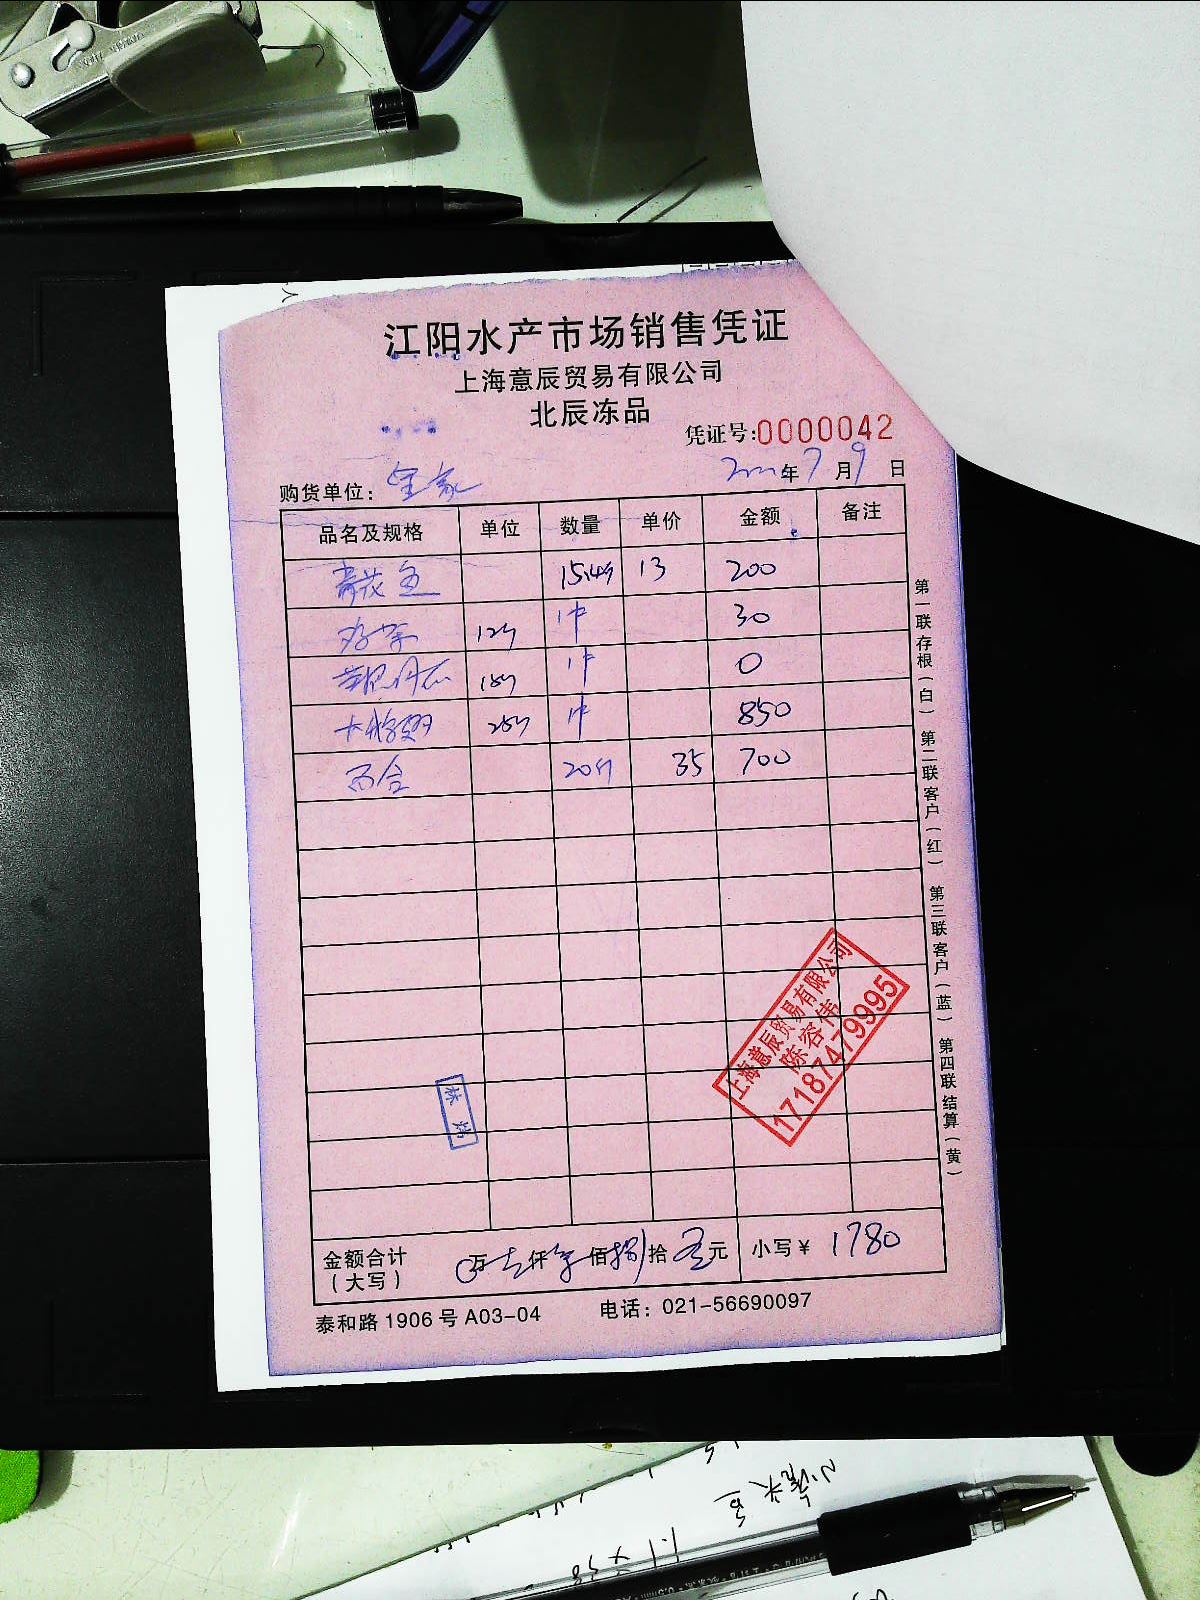 江阳水产市场销售凭证
上海意辰贸易有限公司
北辰冻品
凭证号:0000042
购货单位:
年7月9日
品名及规格 单位 数量 单价 金额 备注
青花鱼 15.4斤 13 200
12斤 1件 30
18斤 1件 0
25斤 1件 850
百合 20斤 35 700
第一联存根(白) 第二联客户(红) 第三联客户(蓝) 第四联结算(黄)
上海意辰贸易有限公司
陈容伟
17187479995
林
金额合计
(大写)
万 仟 佰捌拾 元 小写¥ 1780
泰和路1906号A03-04 电话:021-56690097
小黄头鱼